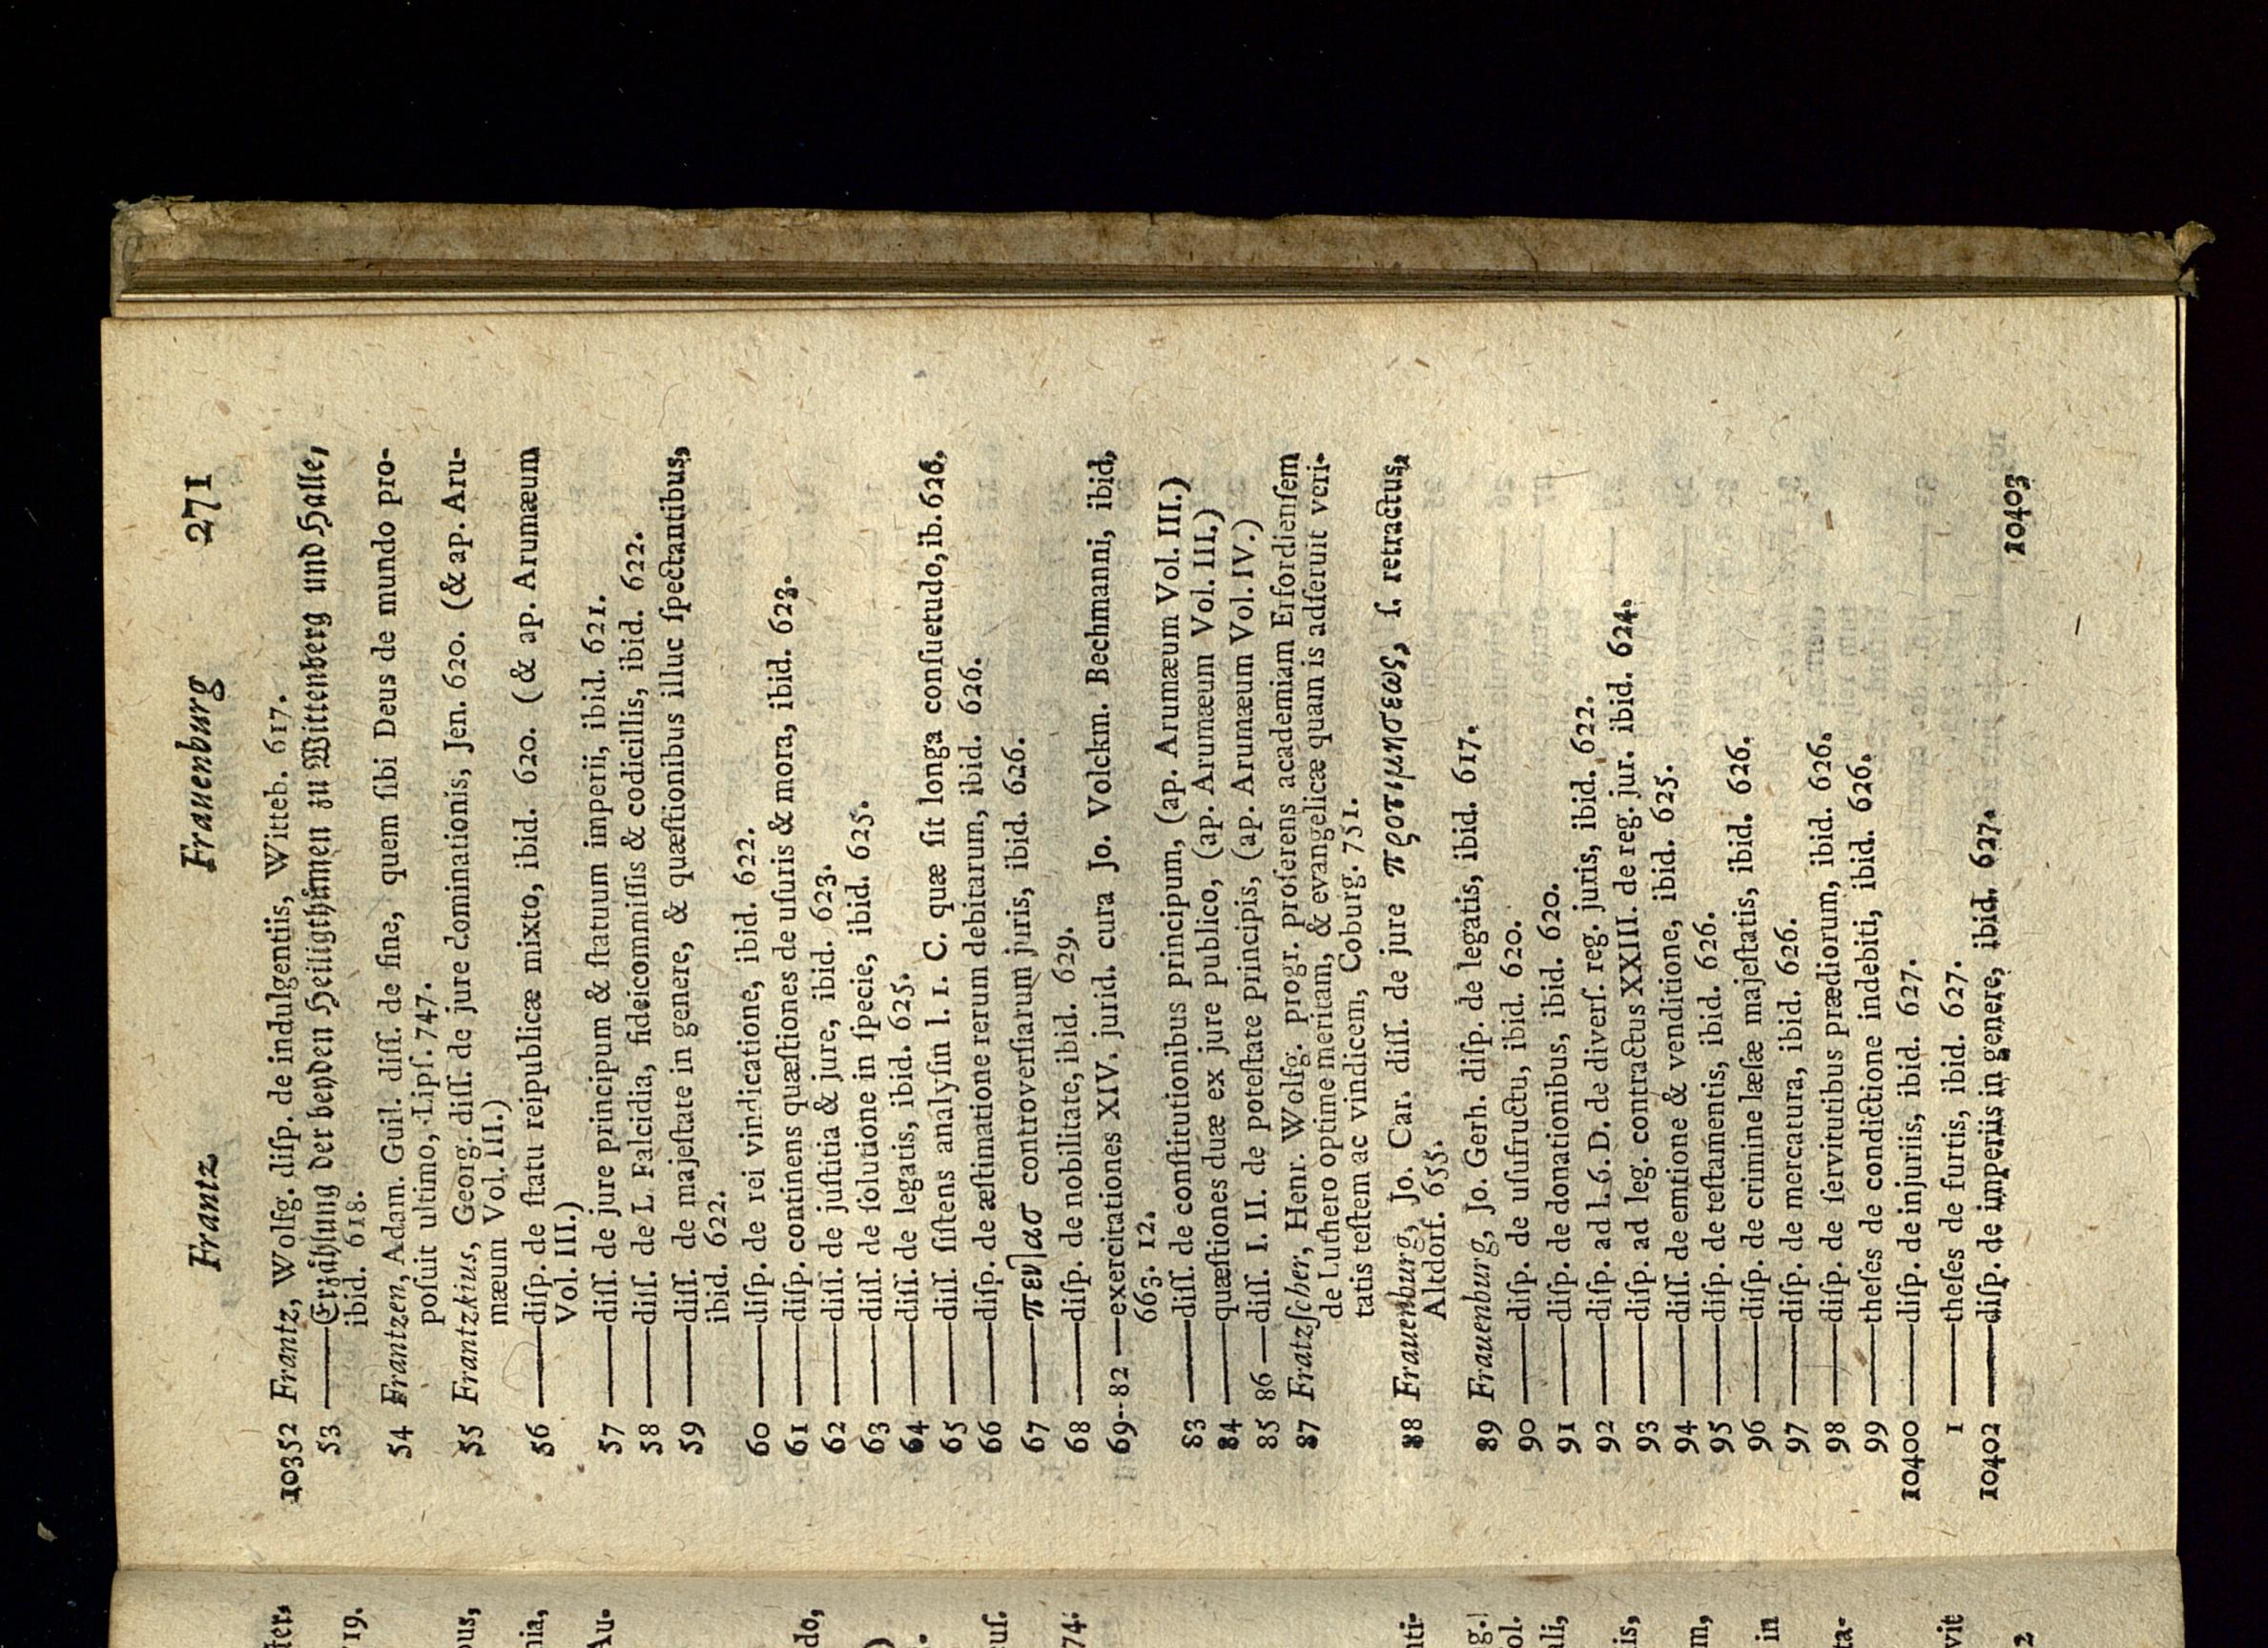 Frantz Frauenburg 271
10352 Frantz, Wolfg. diſp. de indulgentiis, Witteb. 617.
53 —— Erzählung der beyden Heiligthümen zu Wittenberg und Halle,
ibid. 618.
54 Frantzen, Adam. Guil. diſſ. de fine, quem ſibi Deus de mundo pro-
poſuit ultimo, Lipſ. 747.
55 Frantzkius, Georg. diſſ. de jure dominationis, Jen. 620. (& ap. Aru-
mæum Vol. III.)
56 —— diſp. de ſtatu reipublicæ mixto, ibid. 620. (& ap. Arumæum
Vol. III.)
57 —— diſſ. de jure principum & ſtatuum imperii, ibid. 621.
58 —— diſſ. de L. Falcidia, fideicommiſſis & codicillis, ibid. 622.
59 —— diſſ. de majeſtate in genere, & quæſtionibus illuc ſpectantibus,
ibid. 622.
60 —— diſp. de rei vindicatione, ibid. 622.
61 —— diſp. continens quæſtiones de uſuris & mora, ibid. 623.
62 —— diſſ. de juſtitia & jure, ibid. 623.
63 —— diſſ. de ſolutione in ſpecie, ibid. 625.
64 —— diſſ. de legatis, ibid. 625.
65 —— diſſ. ſiſtens analyſin l. 1. C. quæ ſit longa conſuetudo, ib. 626.
66 —— diſp. de æſtimatione rerum debitarum, ibid. 626.
67 —— πενλασ controverſiarum juris, ibid. 626.
68 —— diſp. de nobilitate, ibid. 629.
69--82 — exercitationes XIV. jurid. cura Jo. Volckm. Bechmanni, ibid.
663. 12.
83 —— diſſ. de conſtitutionibus principum, (ap. Arumæum Vol. III.)
84 —— quæſtiones duæ ex jure publico, (ap. Arumæum Vol. III.)
85 86 — diſſ. I. II. de poteſtate principis, (ap. Arumæum Vol. IV.)
87 Fratzſcher, Henr. Wolfg. progr. proferens academiam Erfordienſem
de Luthero optime meritam, & evangelicæ quam is adſeruit veri-
tatis teſtem ac vindicem, Coburg. 751.
88 Frauenburg, Jo. Car. diſſ. de jure προτιμησεως, ſ. retractus,
Altdorf. 655.
89 Frauenburg, Jo. Gerh. diſp. de legatis, ibid. 617.
90 —— diſp. de uſufructu, ibid. 620.
91 —— diſp. de donationibus, ibid. 620.
92 —— diſp. ad l. 6. D. de diverſ. reg. juris, ibid. 622.
93 —— diſp. ad leg. contractus XXIII. de reg. jur. ibid. 624.
94 —— diſſ. de emtione & venditione, ibid. 625.
95 —— diſp. de teſtamentis, ibid. 626.
96 —— diſp. de crimine læſæ majeſtatis, ibid. 626.
97 —— diſp. de mercatura, ibid. 626.
98 —— diſp. de ſervitutibus prædiorum, ibid. 626.
99 —— theſes de condictione indebiti, ibid. 626.
10400 —— diſp. de injuriis, ibid. 627.
1 —— theſes de furtis, ibid. 627.
10402 —— diſp. de imperiis in genere, ibid. 627.
10403